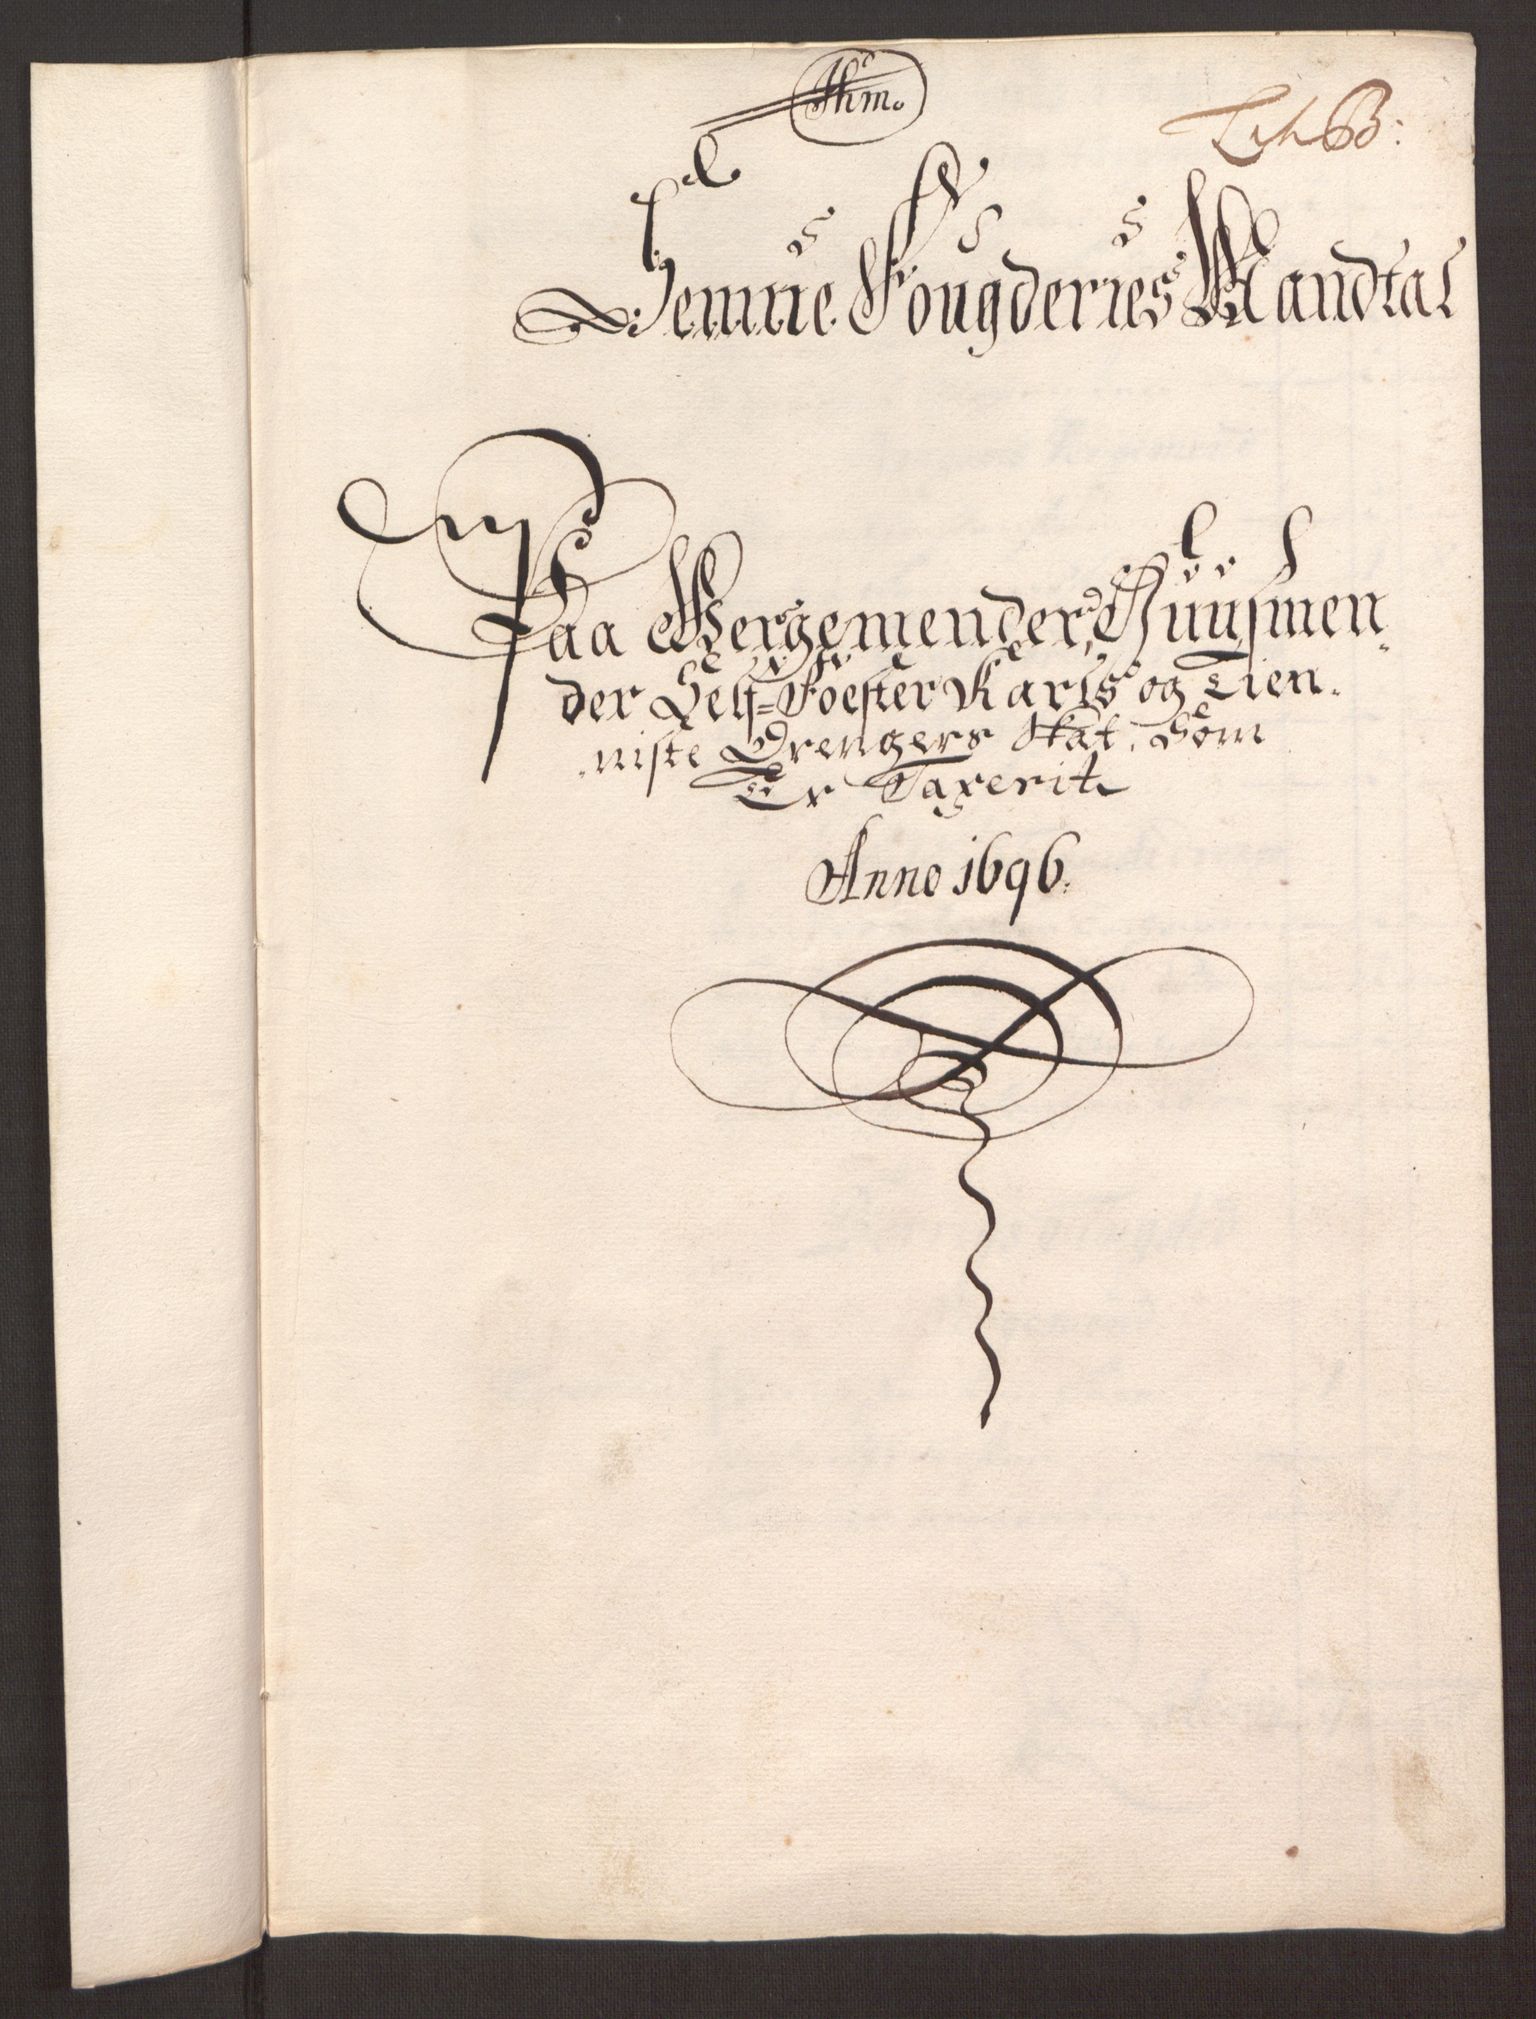 Lit B:
Jemne Fougderies Mandtal
Paa Bergemender, Huusmen-
der Self-Foester Karls og Tien-
niste Drengers Skat, Som
Er Taxerit
Anno 1696.